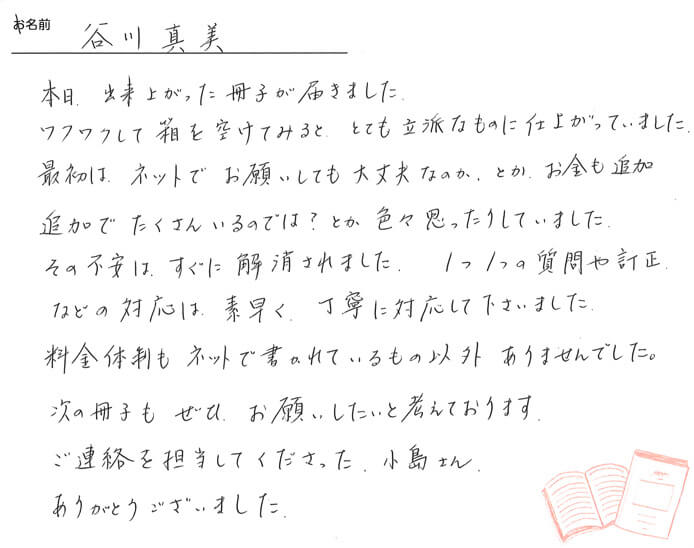 お名前 谷川真美
本日、出来上がった冊子が届きました。
ワクワクして箱を空けてみると、とても立派なものに仕上がっていました。
最初は、ネットでお願いしても大丈夫なのか、とか、お金も追加
追加でたくさんいるのでは?とか色々思ったりしていました。
その不安は、すぐに解消されました。1つ1つの質問や訂正、
などの対応は、素早く、丁寧に対応して下さいました。
料金体制もネットで書かれているもの以外ありませんでした。
次の冊子もぜひ、お願いしたいと考えております。
ご連絡を担当してくださった、小島さん、
ありがとうございました。